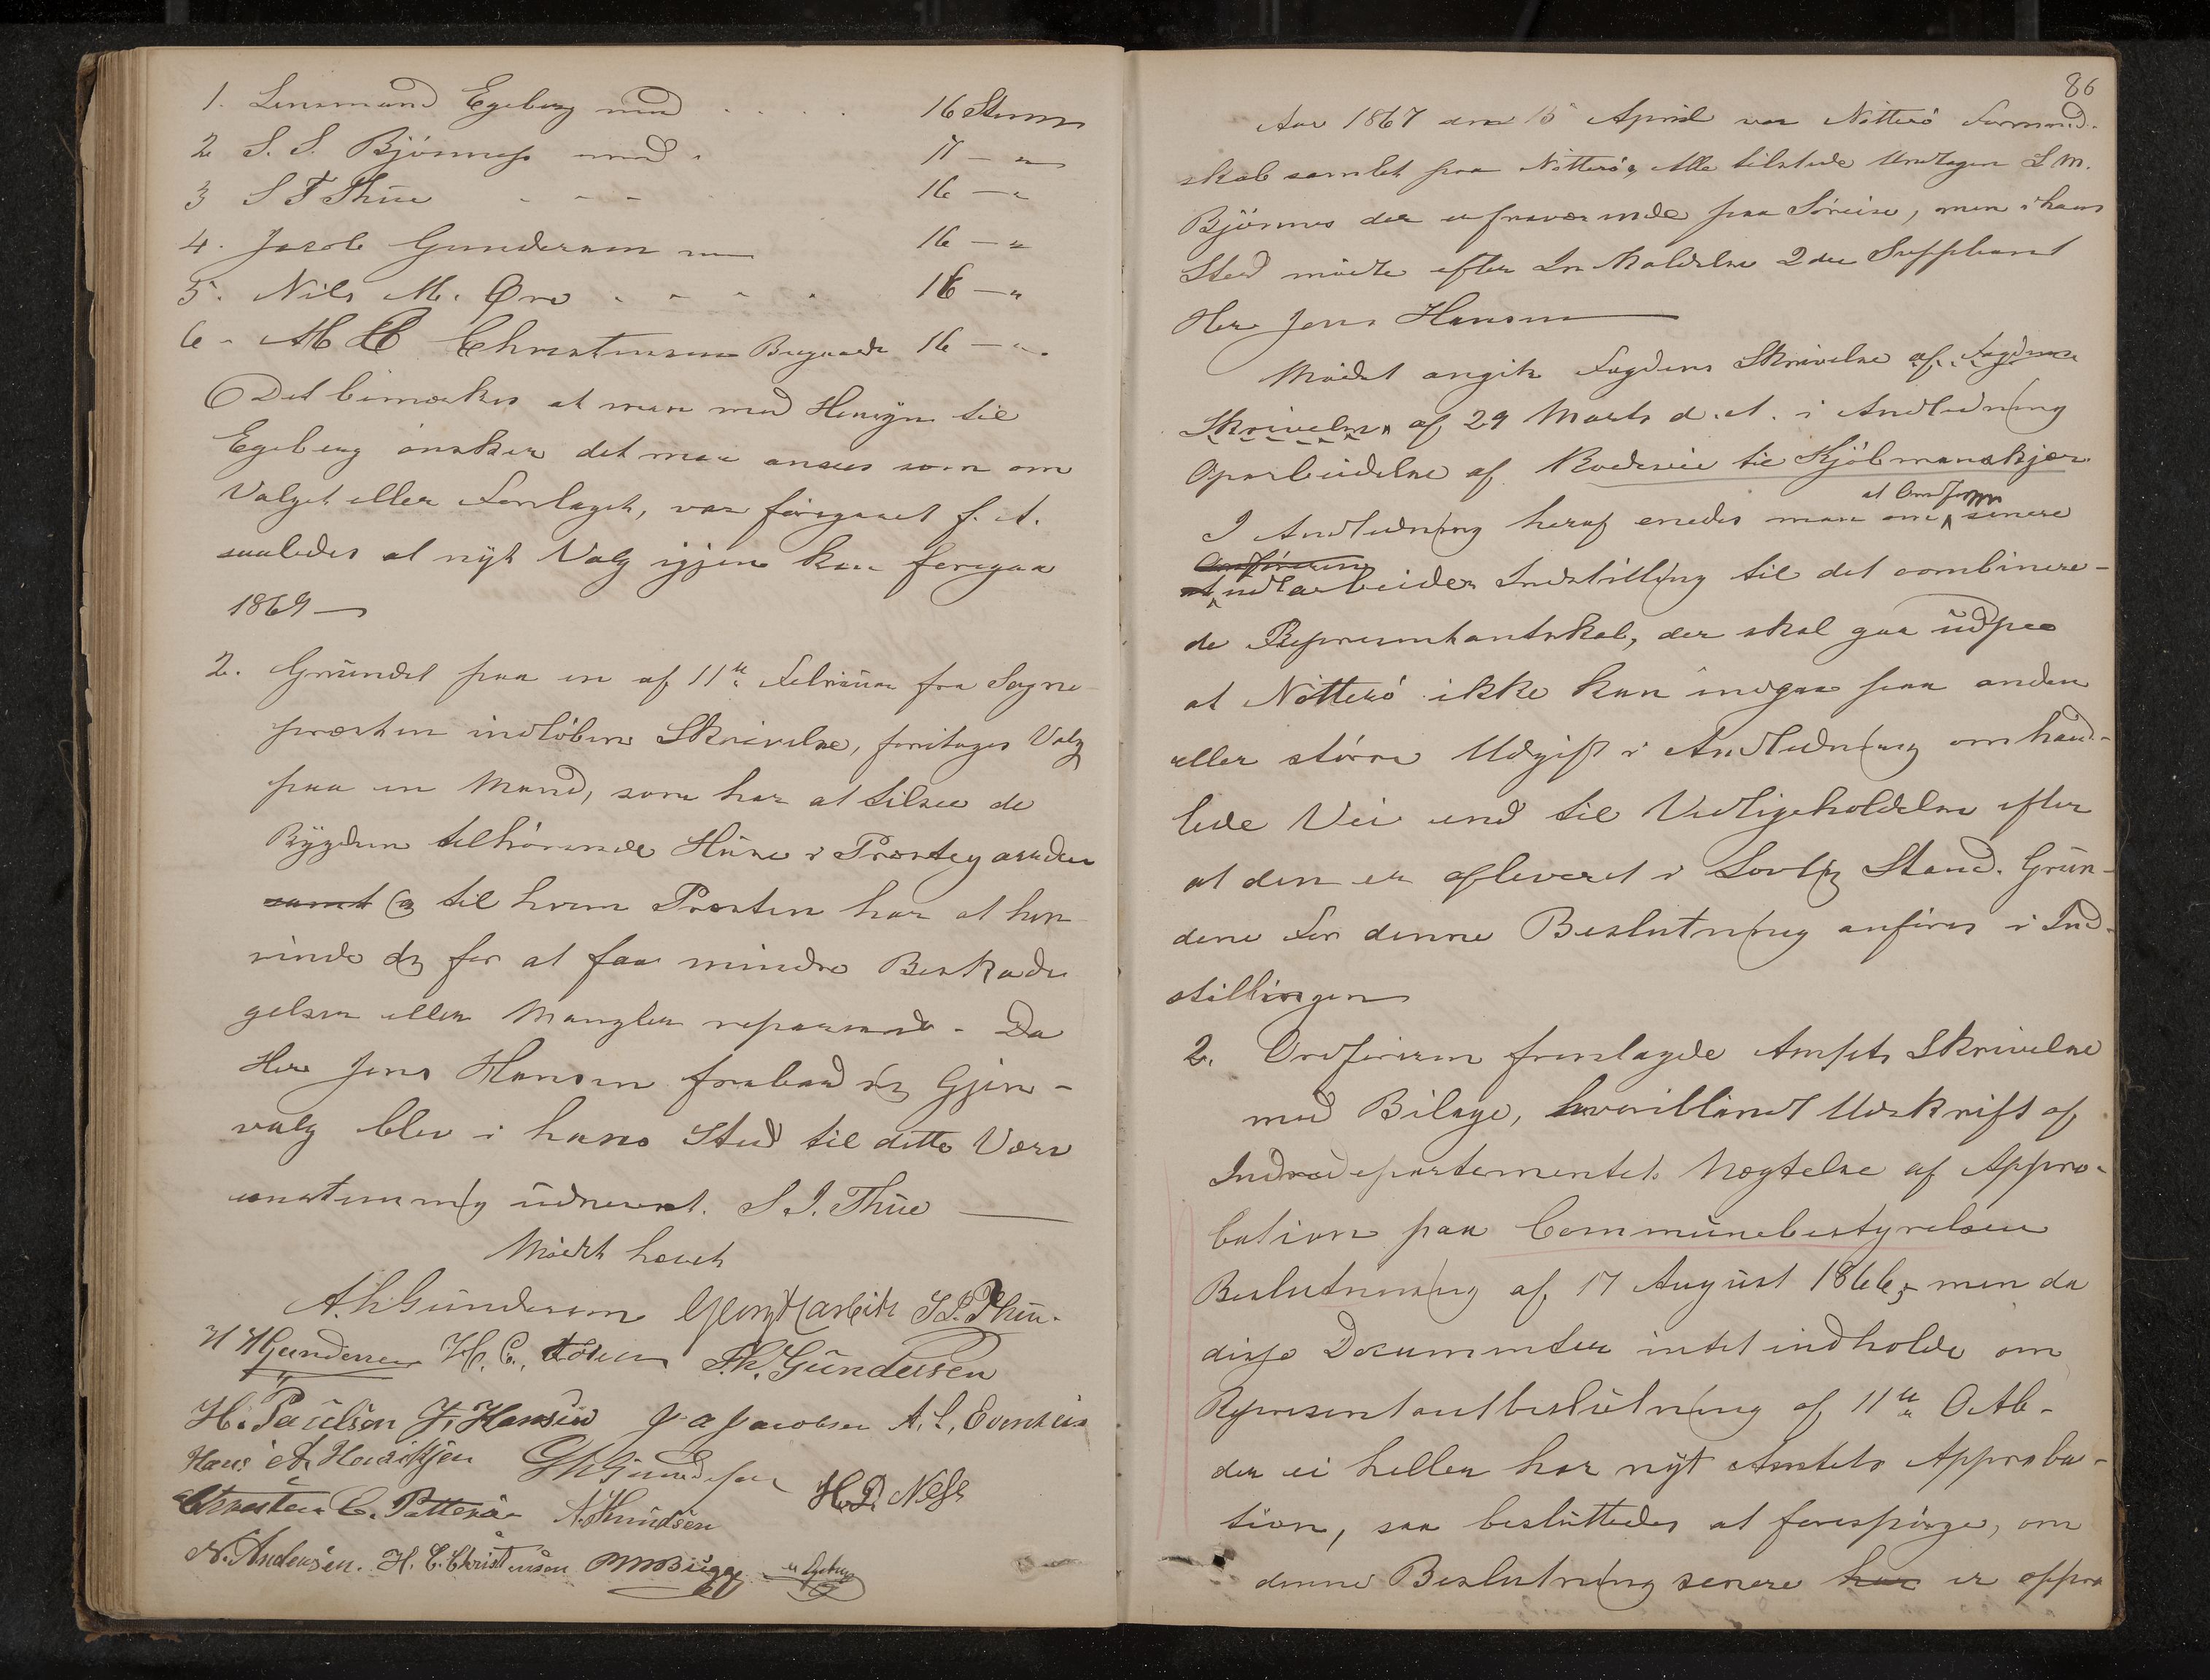 1. Lensmand Egeberg med . . . . 16 Stemmer
2 S. S. Bjönness med . 17 — "
3 S T Thue - - - 16 — "
4. Jacob Gundersen 16 — "
5. Nils M. Øre - - - . 16 — "
6 - M C Christensen Buegaarde 16 — "
Det bemærkes at man med Hensyn til
Egeberg önsker det maa ansees som om
Valget eller Forslaget, var foregaaet f. A.
saaledes at nyt Valg igjen kan foregaa
1869 —
2. Grundet paa en af 11te Februar fra Sogne
præsten indlöben Skrivelse, foretages Valg
paa en Mand, som har at tilsee de
Bygden tilhörende Huse i Præstegaarden
samt og til hvem Præsten har at hen
vende sig for at faa mindre Beskadi
gelser eller Mangler reparerede - Da
Her Jens Hansen frabad sig Gjen-
valg blev i hans Sted til dette Værv
enstemmig udnevnt. S. T. Thue —
Mödet hævet
A. H. Gundersen S T. Thue.
H H Gundersen H. C. Th. Gundersen
H. Paulsen J. Hansen J a Jacobsen A. L. Evensen
Hans A. Henriksen G H Gundersen H. P. Ness
Christen C. A. Knudsen
N. Andersen. H. C. Christensen M M Bugge Egeberg
86
Aar 1867 den 15 April var Nötterö Formand-
skab samlet paa Nötterö, Alle tilstede Undtagen S M.
Bjönnes der er fraværende paa Söreise, men i hans
Sted mödte efter Indkaldelse 2den Suppleant
Her Jens Hansen
Mödet angik Fogdens Skrivelse af Fogdens
Skrivelse af 29 Marts d. A. i Anledning
Oparbeidelse af Rodeveie til Kjöbmanskjær
I Anledning heraf enedes man om at Ordföreren senere
Ordföreren
at udarbeider Indstilling til det combinere-
de Representantskab, der skal gaa ud paa
at Nötterö ikke kan indgaa paa anden
eller större Udgift i Anledning omhand-
lede Vei end til Vedligeholdelse efter
at den er afleveret i Lovlig Stand. Grun-
dene for denne Beslutning anföres i Ind-
stillingen
2. Ordföreren fremlagde Amtets Skrivelse
med Bilage, hvoriblandt Udskrift af
Indredepartementets Nægtelse af Appro-
bation paa Communebestyrelsen
Beslutning af 17 August 1866, men da
disse Documenter intet indholde om
Representantbeslutning af 11te Octb-
der ei heller har nyt Amtets Approba-
tion, saa besluttedes at forespörge, om
denne Beslutning senere har er appro